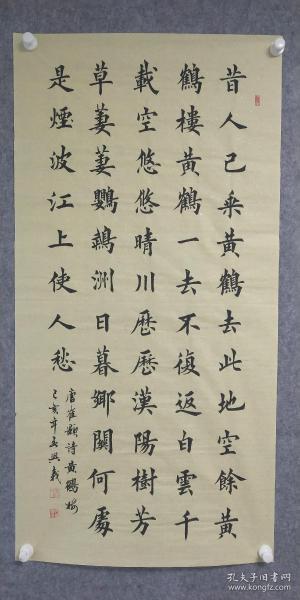 昔人已乘黃鶴去此地空餘黃
鶴樓黃鶴一去不復返白雲千
載空悠悠晴川歷歷漢陽樹芳
草萋萋鸚鵡洲日暮鄉關何處
是煙波江上使人愁
唐崔顥詩黃鶴樓
己亥年
孔夫子旧书网
kongfz.com